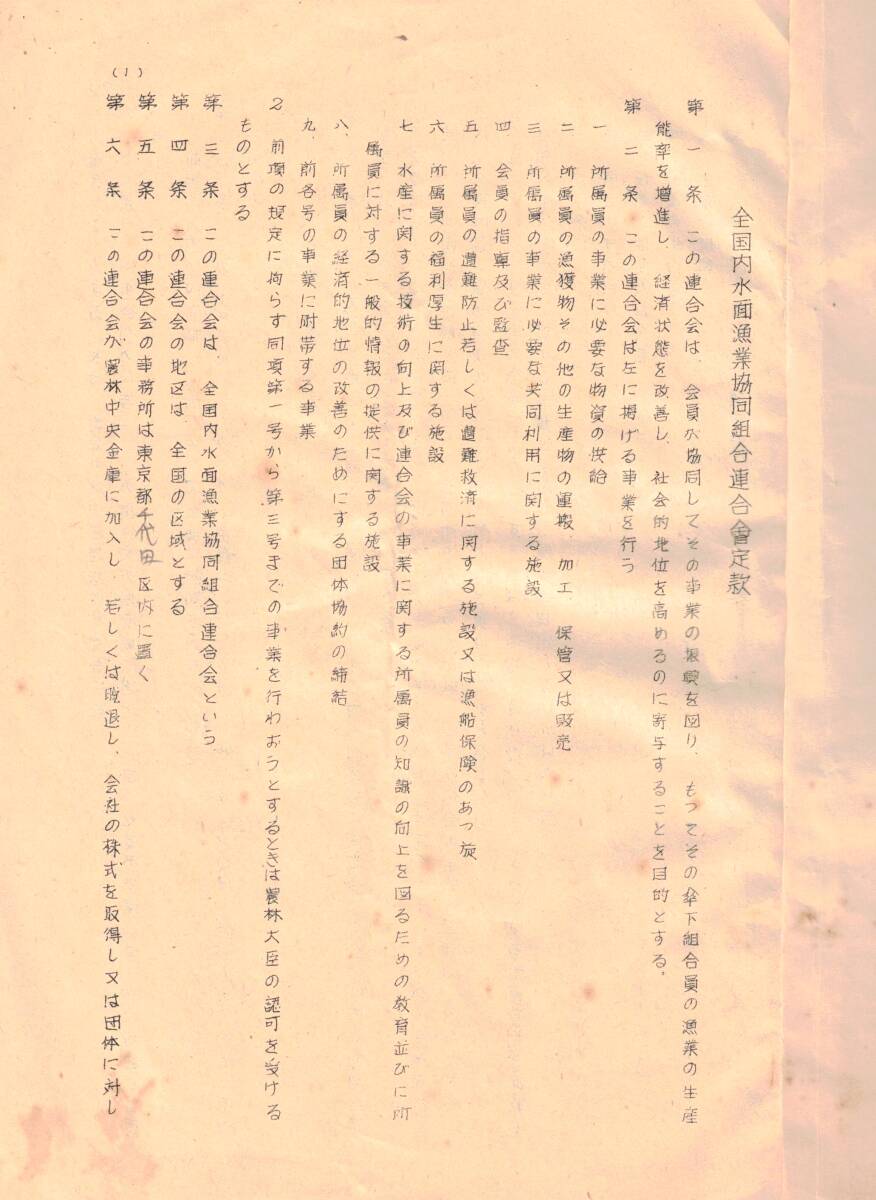 全国内水面漁業協同組合連合會定款
第一条 この連合会は、会員が協同してその事業の振興を図り、もつてその傘下組合員の漁業の生産
能率を増進し、経済状態を改善し、社会的地位を高めるのに寄与することを目的とする。
第二条 この連合会は左に掲げる事業を行う
一 所属員の事業に必要な物資の供給
二 所属員の漁獲物その他の生産物の運搬、加工、保管又は販売
三 所属員の事業に必要な共同利用に関する施設
四、会員の指導及び監査
五、所属員の遭難防止若しくは遭難救済に関する施設又は漁船保険のあつ旋
六 所属員の福利厚生に関する施設
七 水産に関する技術の向上及び連合会の事業に関する所属員の知識の向上を図るための教育並びに所
属員に対する一般的情報の提供に関する施設
八、所属員の経済的地位の改善のためにする団体協約の締結
九、前各号の事業に附帯する事業
2 前項の規定に拘らず同項第一号から第三号までの事業を行わおうとするときは農林大臣の認可を受ける
ものとする
第三条 この連合会は、全国内水面漁業協同組合連合会という
第四条 この連合会の地区は、全国の区域とする
第五条 この連合会の事務所は東京都千代田区内に置く
第六条 この連合会が農林中央金庫に加入し、若しくは脱退し、会社の株式を取得し又は団体に対し
(1)